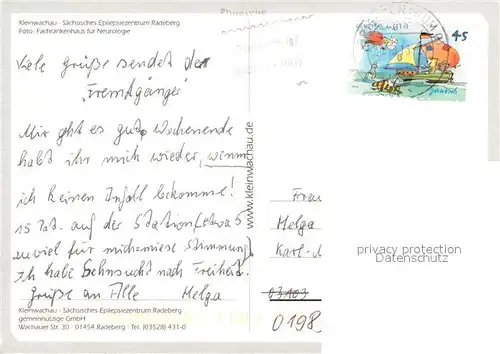 Kleinwachau - Sächsisches Epilepsiezentrum Radeberg
Foto: Fachkrankenhaus für Neurologie
45
Janosch
Viele Grüße sendet der
"Fremdgänger"
Mir geht es gut, Wochenende
habt ihr mich wieder, wenn
ich keinen Infall bekomme!
15 Pat. auf der Station (etwas
zuviel für mich=miese Stimmung)
Ich habe Sehnsucht nach Freiheit.
Grüße an Alle Helga
www.kleinwachau.de
Frau
Helga
Karl-
03103
0198
privacy protection
Datenschutz
Kleinwachau - Sächsisches Epilepsiezentrum Radeberg
gemeinnützige GmbH
Wachauer Str. 30 · 01454 Radeberg · Tel. (03528) 431-0